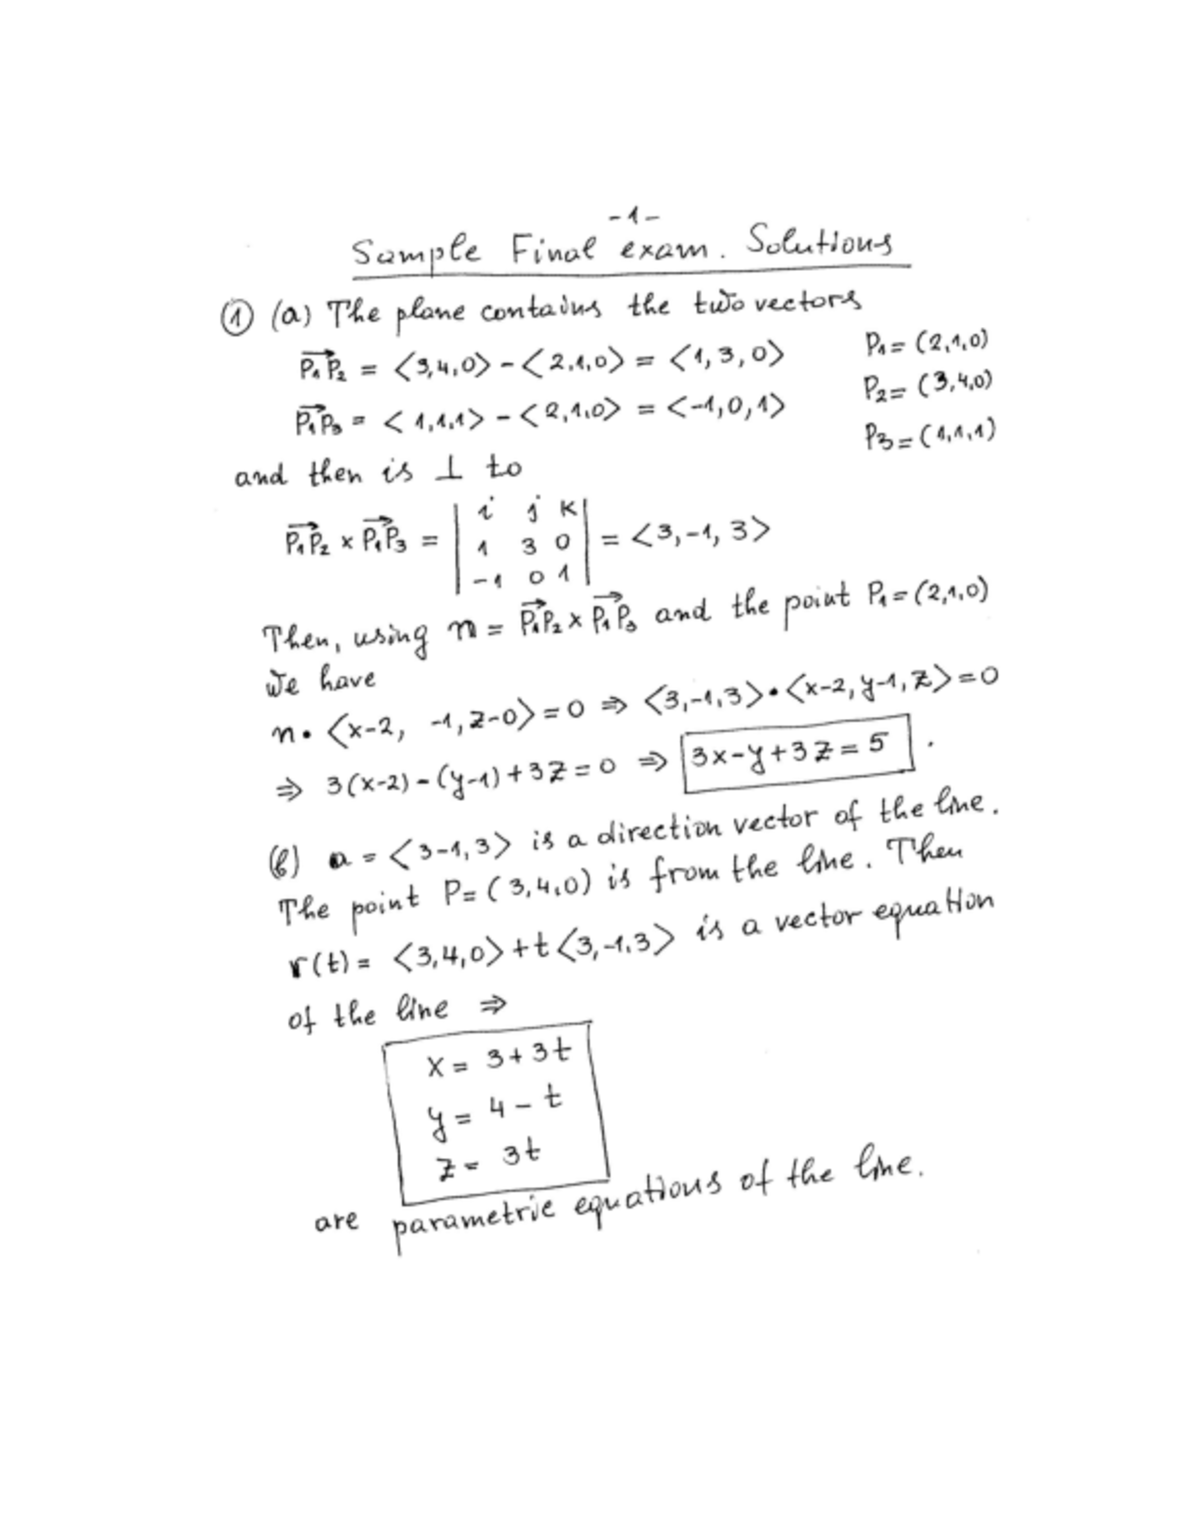 -1-
Sample Final exam. Solutions
① (a) The plane contains the two vectors
P₁P₂ = <3,4,0> - <2,1,0> = <1,3,0>
P₁ = (2,1,0)
P₁P₃ = <1,1,1> - <2,1,0> = <-1,0,1>
P₂ = (3,4,0)
P₃ = (1,1,1)
and then is ⊥ to
P₁P₂ × P₁P₃ = | i j k | = <3,-1,3>
| 1 3 0 |
| -1 0 1 |
Then, using n = P₁P₂ × P₁P₃ and the point P₁ = (2,1,0)
we have
n • <x-2, -1, z-0> = 0 ⇒ <3,-1,3> • <x-2, y-1, z> = 0
⇒ 3(x-2) - (y-1) + 3z = 0 ⇒ 3x - y + 3z = 5 .
(b) a = <3-1,3> is a direction vector of the line.
The point P = (3,4,0) is from the line. Then
r(t) = <3,4,0> + t <3,-1,3> is a vector equation
of the line ⇒
x = 3 + 3t
y = 4 - t
z = 3t
are parametric equations of the line.